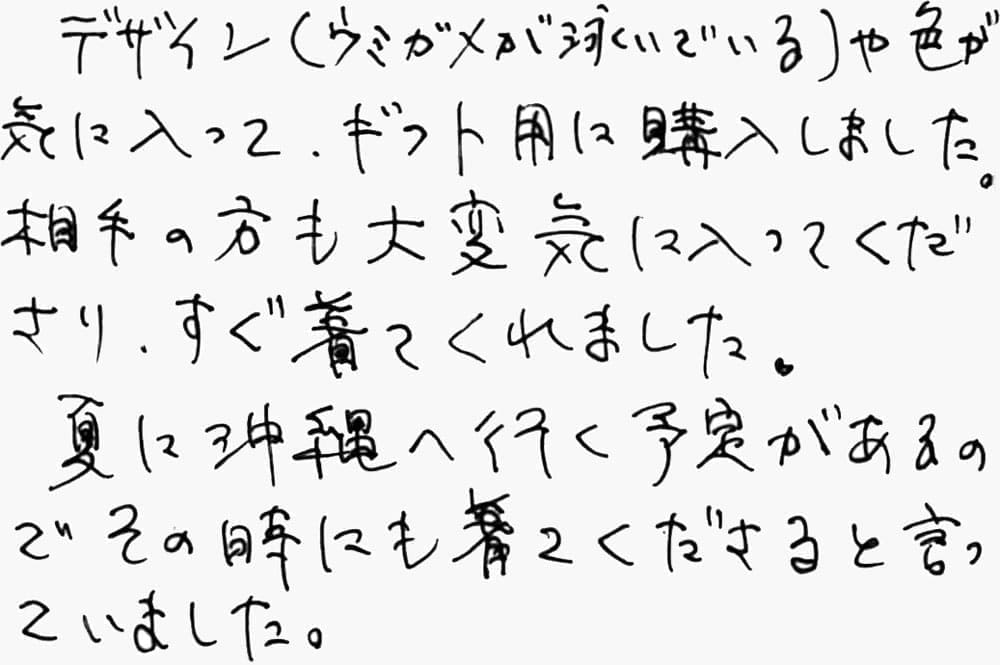 デザイン(ウミガメが泳いでいる)や色が
気に入って、ギフト用に購入しました。
相手の方も大変気に入ってくだ
さり、すぐ着てくれました。
夏に沖縄へ行く予定があるの
でその時にも着てくださると言っ
ていました。